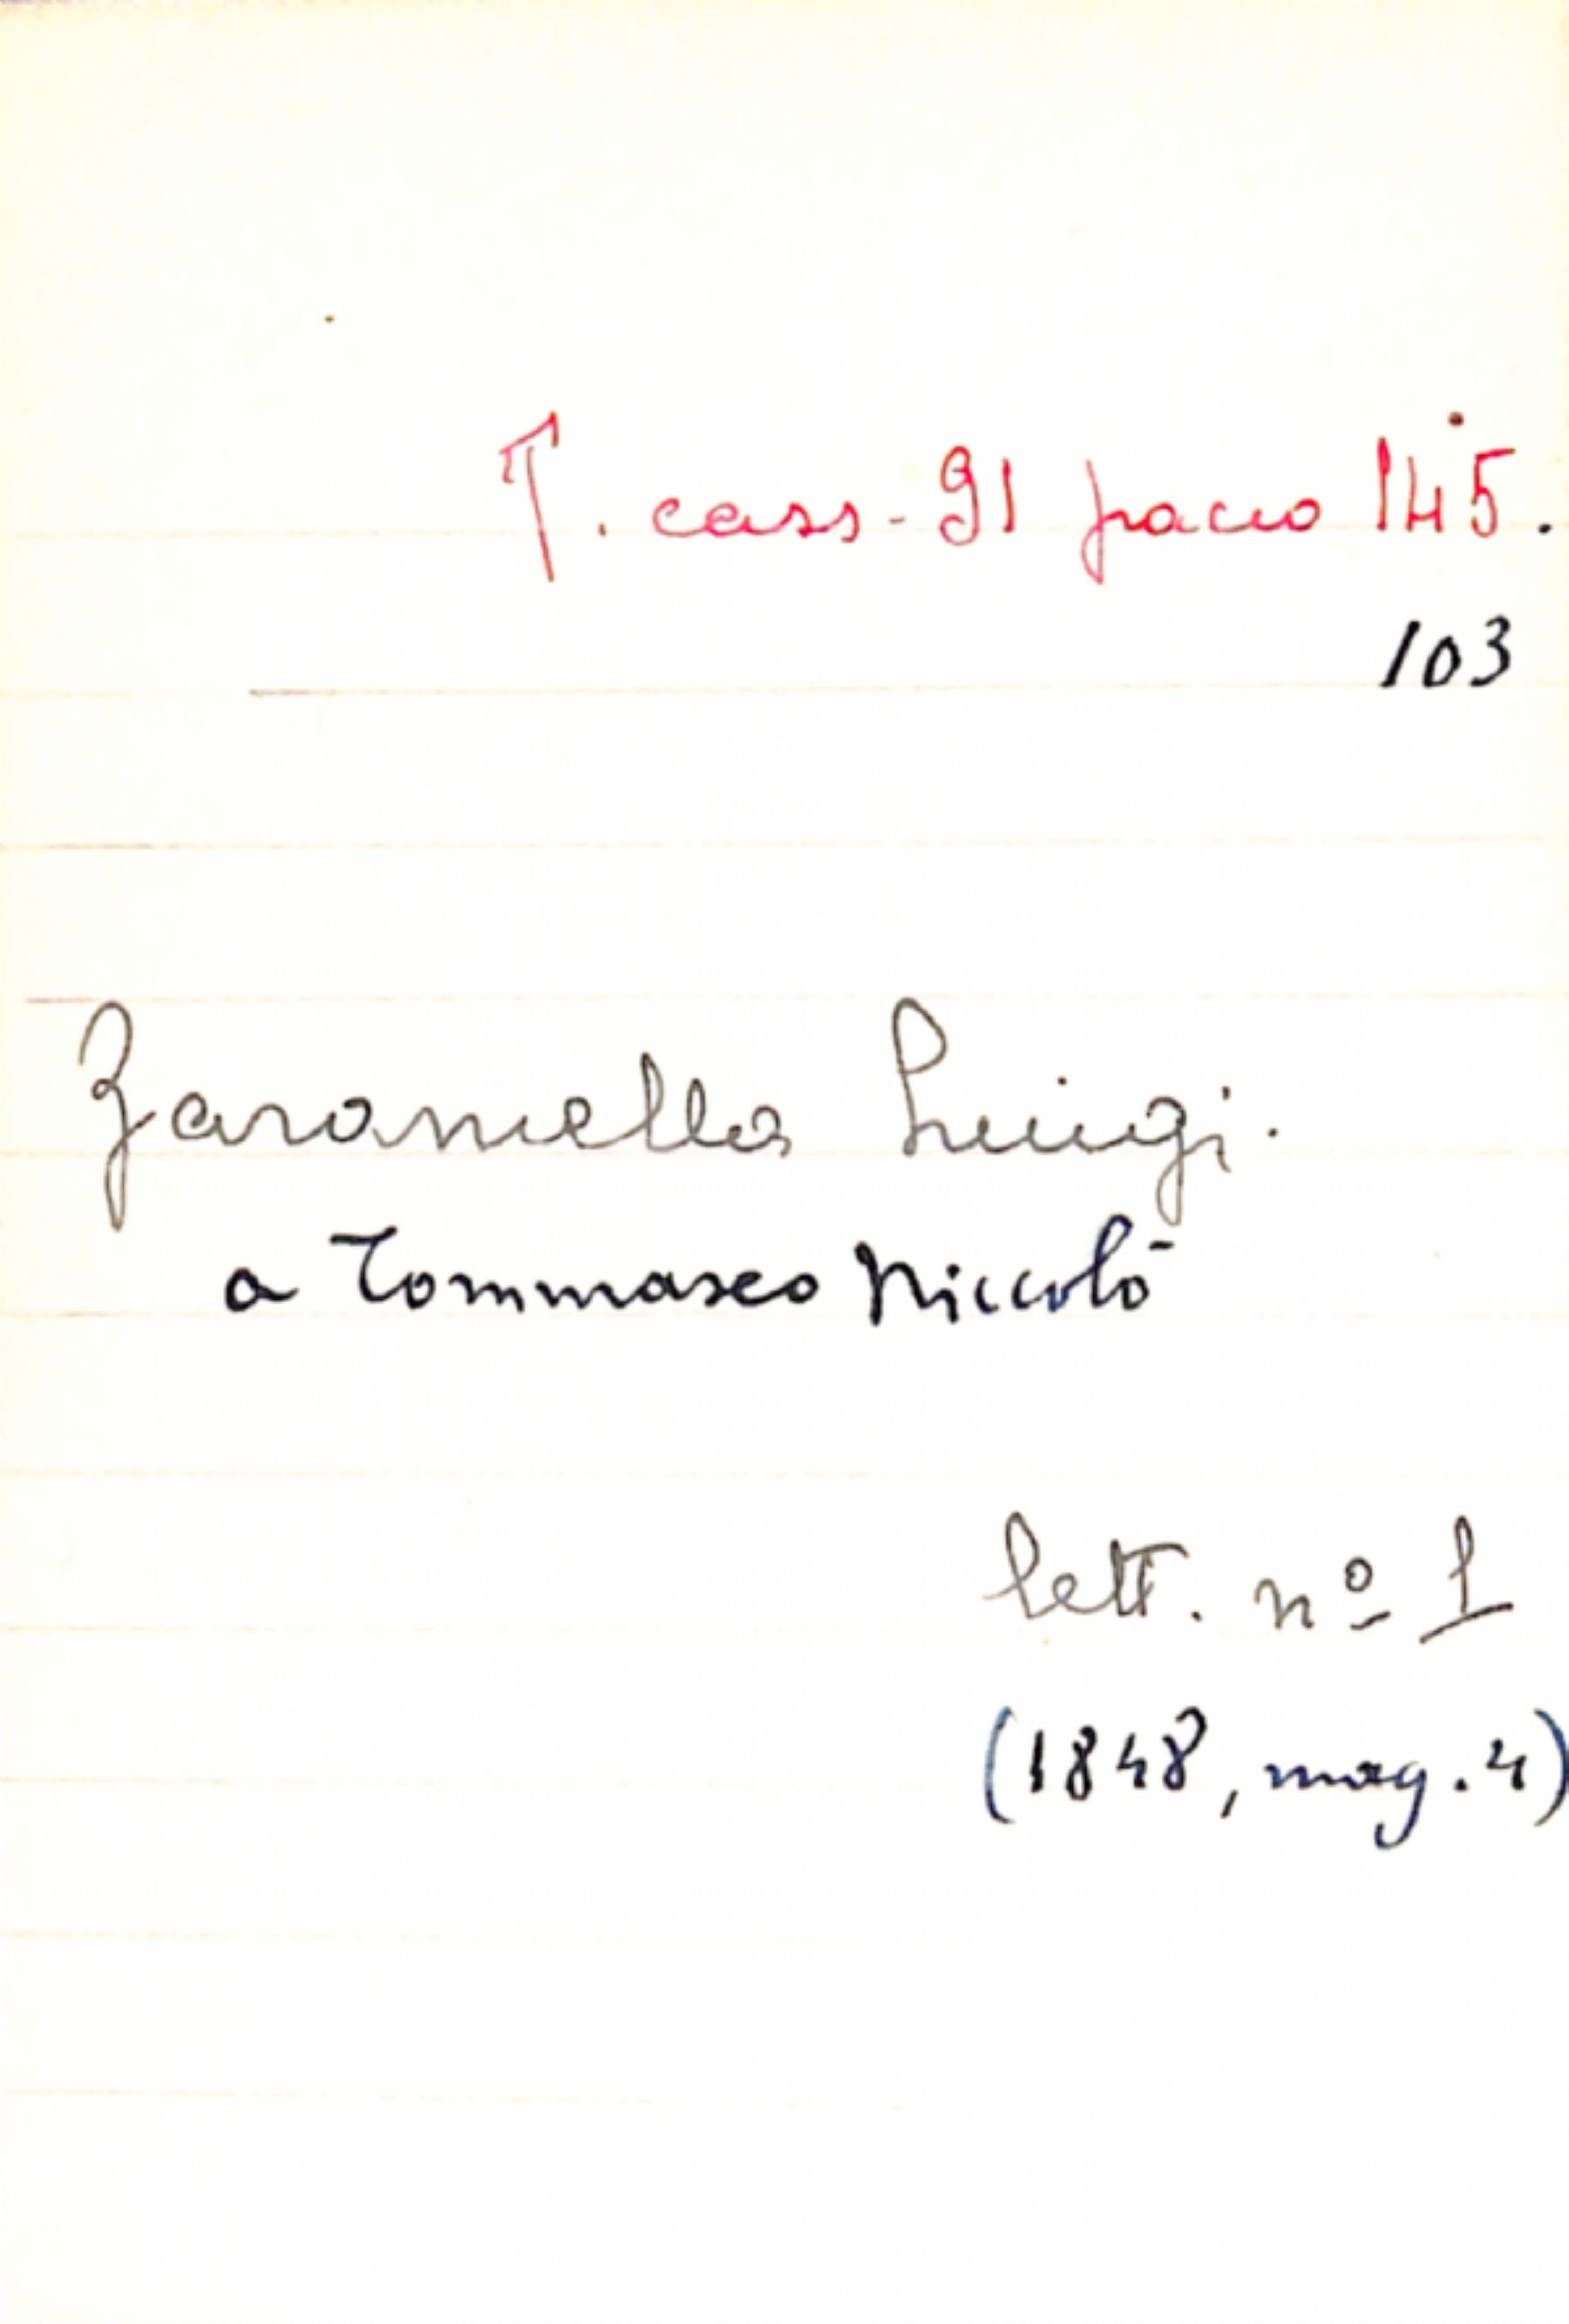 T. cass. 91 pacco 145.
103
Zaramella Luigi.
a Tommaseo Niccolò
lett. nº 1
(1848, mag. 4)